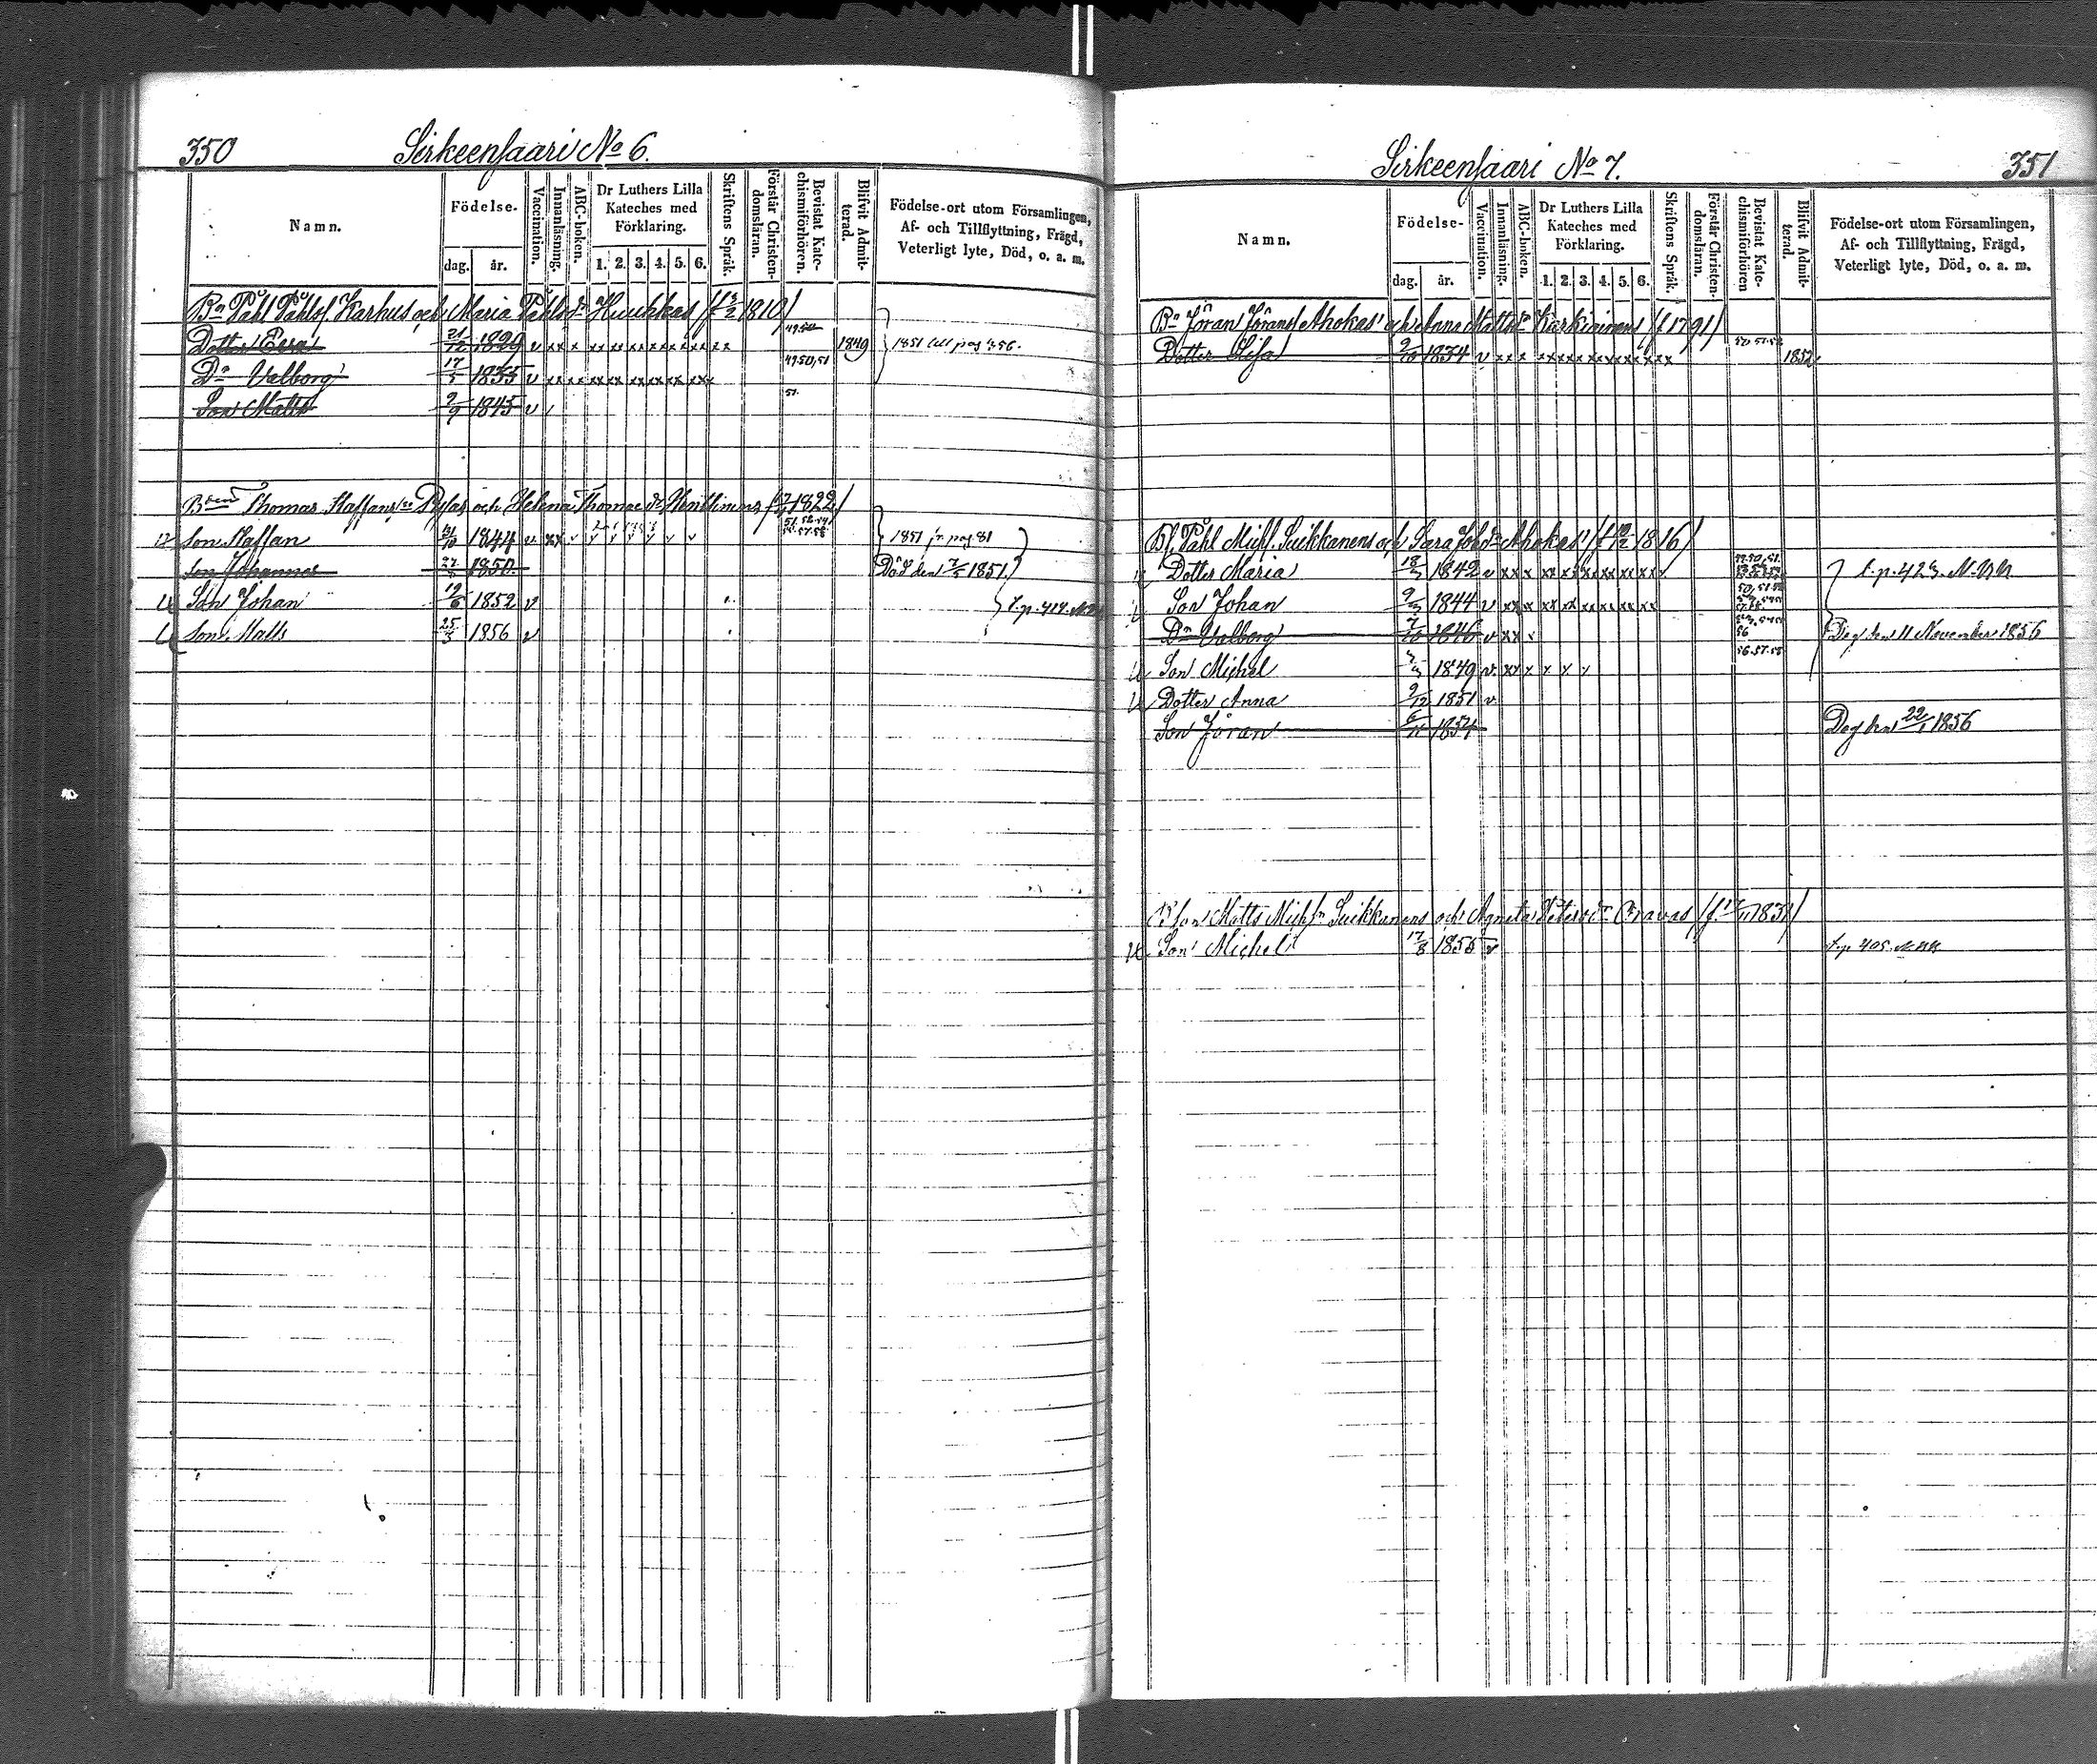 350 Sirkeensaari No 6.
Namn.
Födelse-
dag. år.
Vaccination.
Innanläsning.
ABC-boken.
Dr Luthers Lilla Kateches med Förklaring.
1. 2. 3. 4. 5. 6.
Skriftens Språk.
Förstår Christendomsläran.
Bevistat Katechismiförhören.
Blifvit Admitterad.
Födelse-ort utom Församlingen,
Af- och Tillflyttning, Frägd,
Veterligt lyte, Död, o. a. m.
Bn Påhl Påhlsf. Karhus och Maria Påhlsdr Huuhkas 1810)
Dotter 21/12 1829 v x x x xx xx xx xx xx xx xx 49.50 1849 1851 till pag 356.
Dr Valborg 17/5 1835 v xx xx xx xx xx xx xx 49.50,51
Son Matts 2/9 1845 v / 51.
Thomas Staffansson och Helena Thomædr 1822)
Son Staffan 1844 v xx v v v v v v v 1851 fr pag 81
Son Johannes 1850. Död den 1851.
Son Johan 19/6 1852 v t. p. 419.
Son Matts 25/3 1856 v
Sirkeensaari No 7. 351
Namn.
Födelse-
dag. år.
Vaccination.
Innanläsning.
ABC-boken.
Dr Luthers Lilla Kateches med Förklaring.
1. 2. 3. 4. 5. 6.
Skriftens Språk.
Förstår Christendomsläran.
Bevistat Katechismiförhören
Blifvit Admitterad.
Födelse-ort utom Församlingen,
Af- och Tillflyttning, Frägd,
Veterligt lyte, Död, o. a. m.
Bn Jöran Jöransf Ahokas och Anna Mattsdr (f 1791)
Dotter Lisa 9/10 1834 v x x x xx xx xx xx xx xx xx 1852
Påhl Mich. Suikkanens och Sara Ahokas 1816)
Dotter Maria 1842 v xx x xx xx xx xx xx xx t. p. 423. N. B.
Son Johan 1844 v xx x xx xx xx xx xx xx
Dr Valborg 7/10 1846 v xx x 56 Död den 11 November 1856
Son Michel 1849 v xx x x x x 56.57.58
Dotter Anna 9/12 1851 v
Son Jöran 1854 Död den 22/1 1856
Matts Suikkanens och Agneta Petersdr Oravas
Son Michel 17/8 1855 v t. p 405.